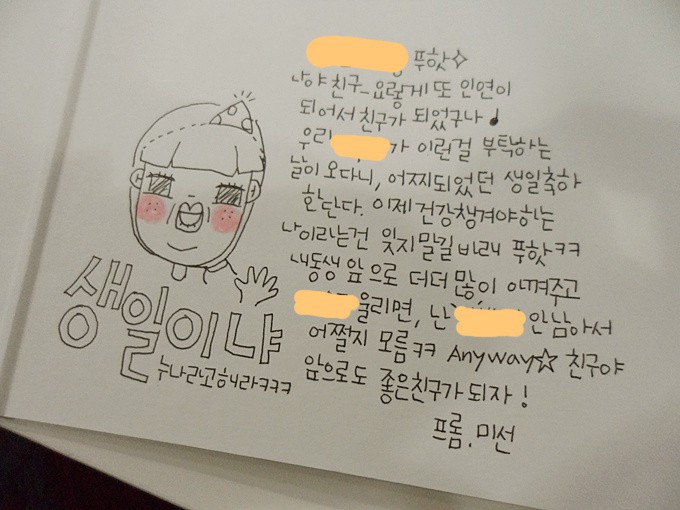 푸핫✧
나야 친구_ 요렇게 또 인연이
되어서 친구가 되었구나
우리 가 이런걸 부탁하는
날이 오다니, 어찌되었던 생일축하
한단다. 이제 건강챙겨야하는
나이라는건 잊지말길 바래 푸핫ㅋㅋ
내동생 앞으로 더더 많이 아껴주고
울리면, 난 안남아서
어쩔지 모름ㅋㅋ Anyway☆ 친구야
앞으로도 좋은친구가 되자!
프롬. 미선
생일이냐
누나라고해라ㅋㅋㅋ